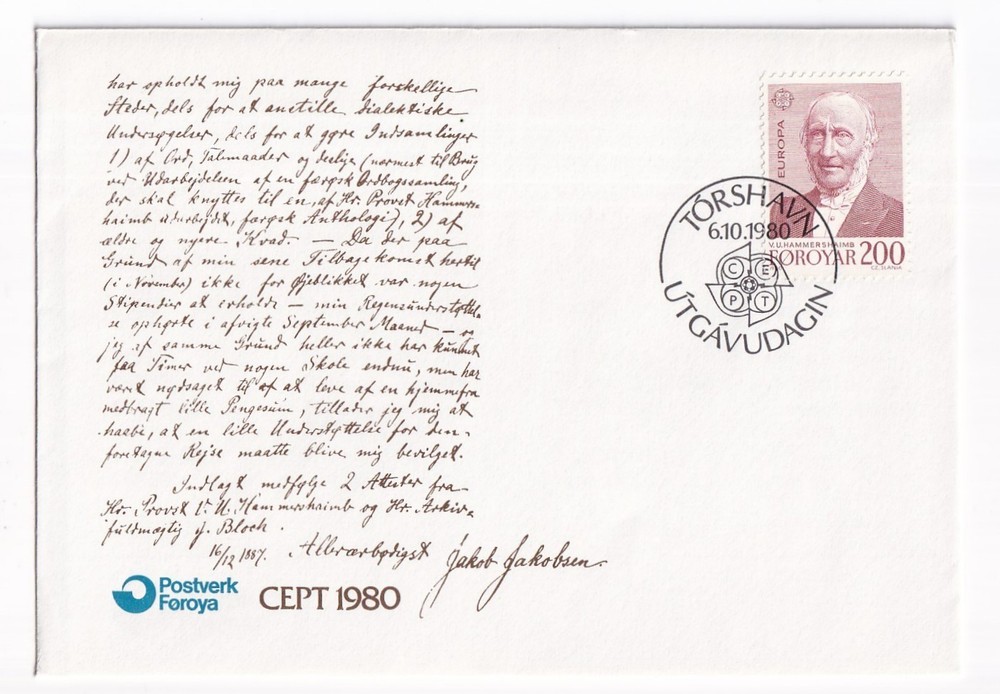 har opholdt mig paa mange forskellige
Steder, dels for at anstille dialektiske
Undersøgelser, dels for at gøre Indsamlinger
1) af Ord, Talemaader og deslige (nærmest til Brug
ved Udarbejdelsen af en færøsk Ordbogssamling,
der skal knyttes til en, af Hr. Provst Hammers-
haimb udarbejdet, færøsk Anthologi), 2) af
ældre og nyere Kvad. — Da der paa
Grund af min sene Tilbagekomst hertil
(i November) ikke for Øjeblikket var nogen
Stipendier at erholde — min Regensunderstøttel-
se ophørte i afvigte September Maaned — og
jeg af samme Grund heller ikke har kunnet
faa Timer ved nogen Skole endnu, men har
været nødsaget til at leve af en hjemmefra
medbragt lille Pengesum, tillader jeg mig at
haabe, at en lille Understøttelse for den
foretagne Rejse maatte blive mig bevilget.
Indlagt medfølge 2 Attester fra
Hr. Provst V. U. Hammershaimb og Hr. Arkiv-
fuldmægtig J. Bloch.
16/12 1887. Allerærbødigst Jakob Jakobsen.
Postverk
Føroya
CEPT 1980
EUROPA
V.U.HAMMERSHAIMB
FØROYAR 200
CZ.SLANIA
TÓRSHAVN
6.10.1980
CEPT
ÚTGÁVUDAGIN